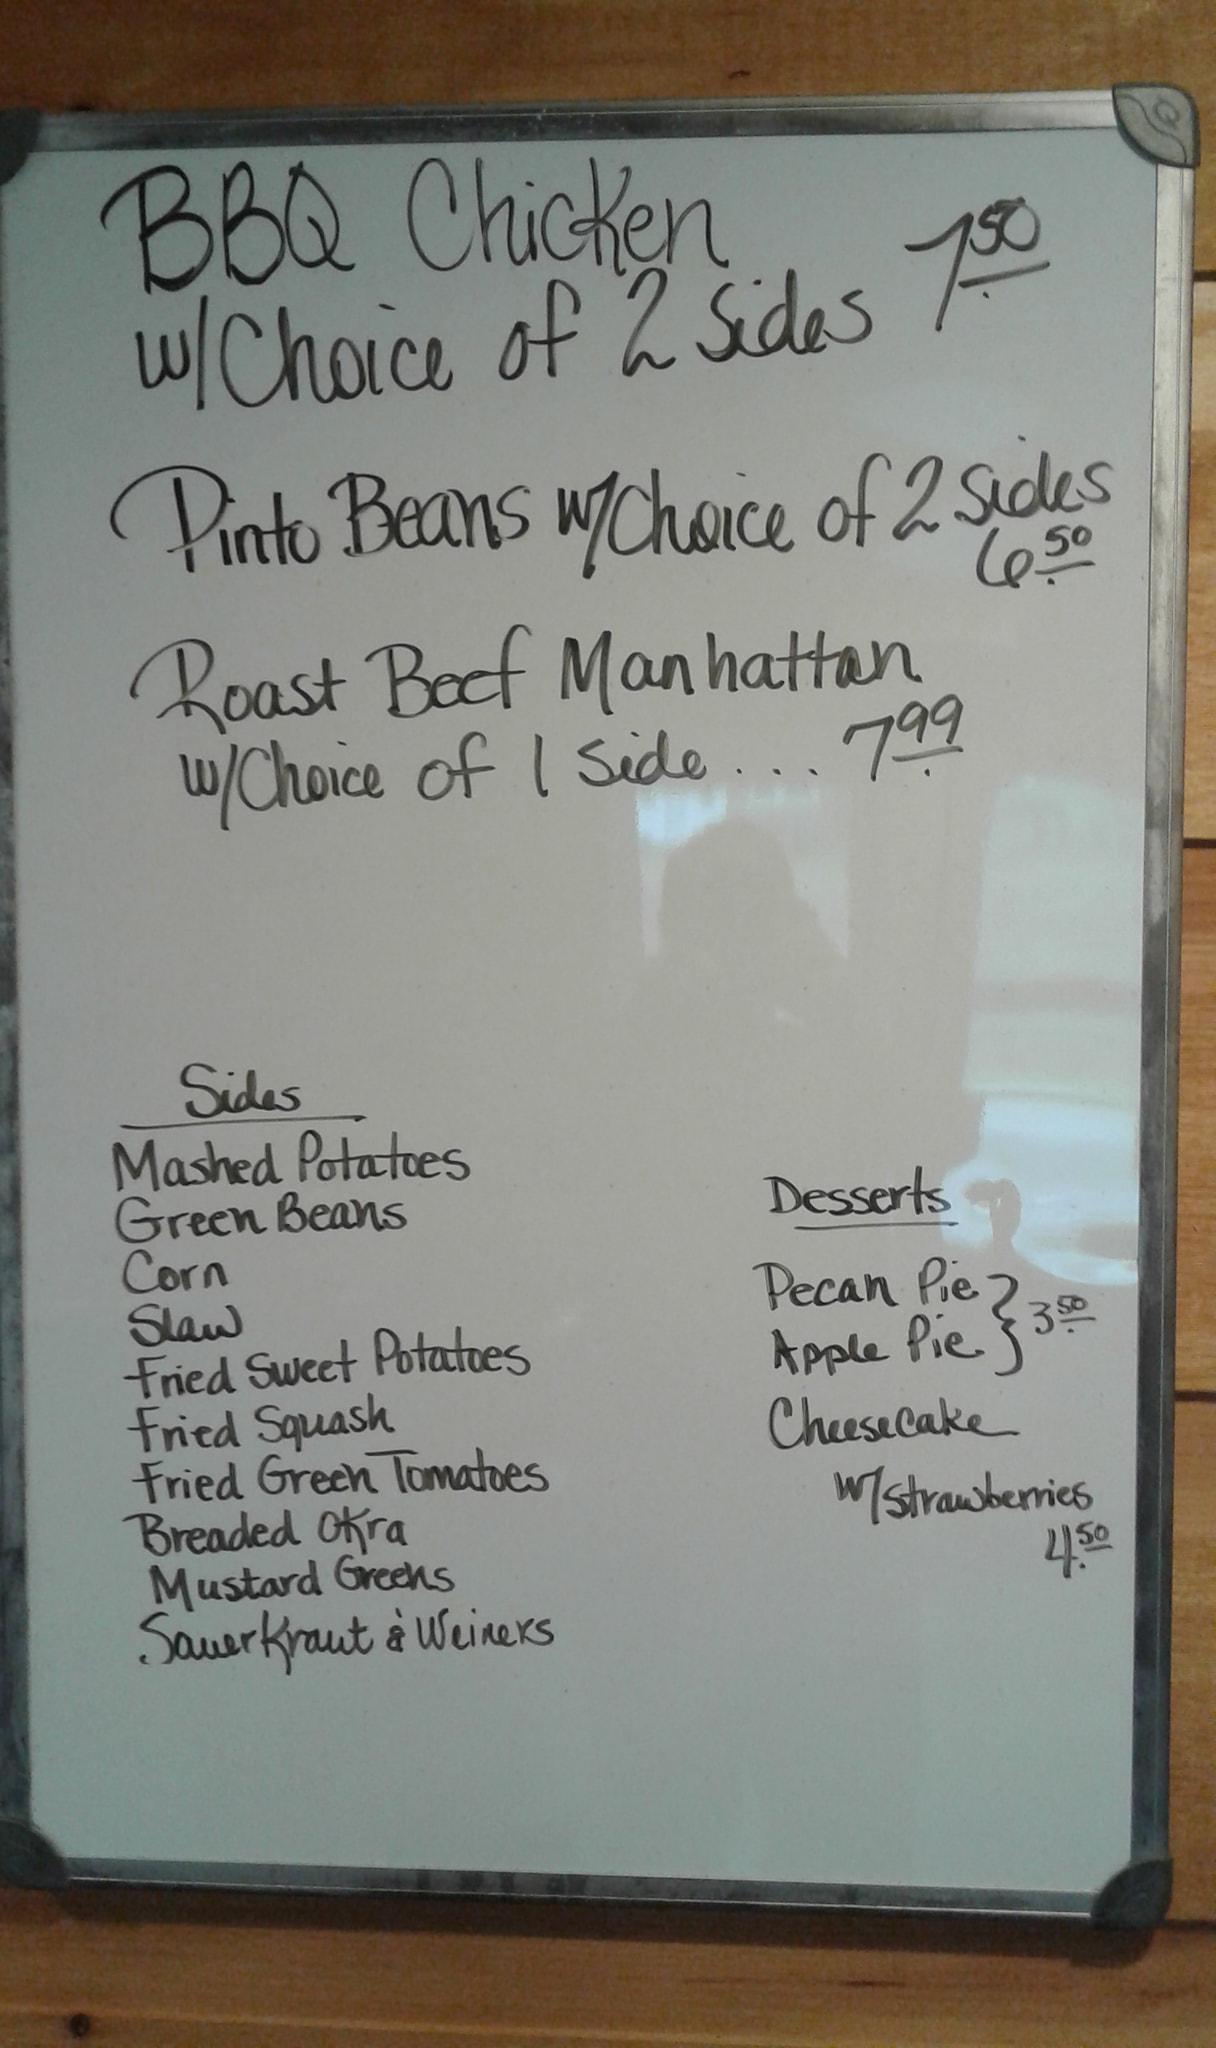 BBQ Chicken
w/Choice of 2 Sides 7.50
Pinto Beans w/Choice of 2 Sides
6.50
Roast Beef Manhattan
w/Choice of 1 Side ... 7.99
Sides
Mashed Potatoes
Green Beans
Corn
Slaw
Fried Sweet Potatoes
Fried Squash
Fried Green Tomatoes
Breaded Okra
Mustard Greens
Sauerkraut & Weiners
Desserts
Pecan Pie
Apple Pie } 3.50
Cheesecake
w/strawberries
4.50